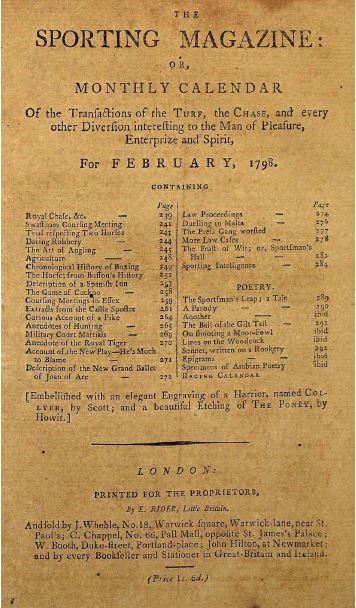 THE
SPORTING MAGAZINE:
OR,
MONTHLY CALENDAR
Of the Transactions of the TURF, the CHASE, and every
other Diversion interesting to the Man of Pleasure,
Enterprize and Spirit,
For FEBRUARY, 1798.
CONTAINING
Page
Royal Chase, &c. — 239
Swaffham Coursing Meeting 241
Trial respecting Two Horses 243
Daring Robbery — 244
The Art of Angling — 245
Agriculture — 248
Chronological History of Boxing 249
The Horse; from Buffon's History 252
Description of a Spanish Inn 257
The Game of Cuckoo — 258
Coursing Meetings in Essex 259
Extracts from the Castle Spectre 261
Curious Account of a Pike 264
Anecdotes of Hunting 265
Military Court Martials — 269
Anecdote of the Royal Tiger 270
Account of the New Play—He's Much
to Blame — 271
Description of the New Grand Ballet
of Joan of Arc — 272
Page
Law Proceedings — 274
Duelling in Malta — 276
The Press Gang worsted 277
More Law Cases — 278
The Feast of Wit; or, Sportsman's
Hall — 282
Sporting Intelligence — 284
POETRY.
The Sportsman's Leap; a Tale 289
A Parody — — 290
Another — ibid
The Bait of the Gilt Tail — 291
On shooting a Moor-Fowl ibid
Lines on the Woodcock ibid
Sonnet, written on a Rookery 292
Epigrams — ibid
Specimens of Arabian Poetry ibid
RACING CALENDAR
[Embellished with an elegant Engraving of a Harrier, named COL-
LYER, by Scott; and a beautiful Etching of THE PONEY, by
Howit.]
LONDON:
PRINTED FOR THE PROPRIETORS,
By E. RIDER, Little Britain.
And sold by J. Wheble, No. 18, Warwick-square, Warwick-lane, near St.
Paul's; C. Chappel, No. 66, Pall Mall, opposite St. James's Palace;
W. Booth, Duke-street, Portland-place; John Hilton, at Newmarket;
and by every Bookseller and Stationer in Great-Britain and Ireland.
(Price 1s. 6d.)